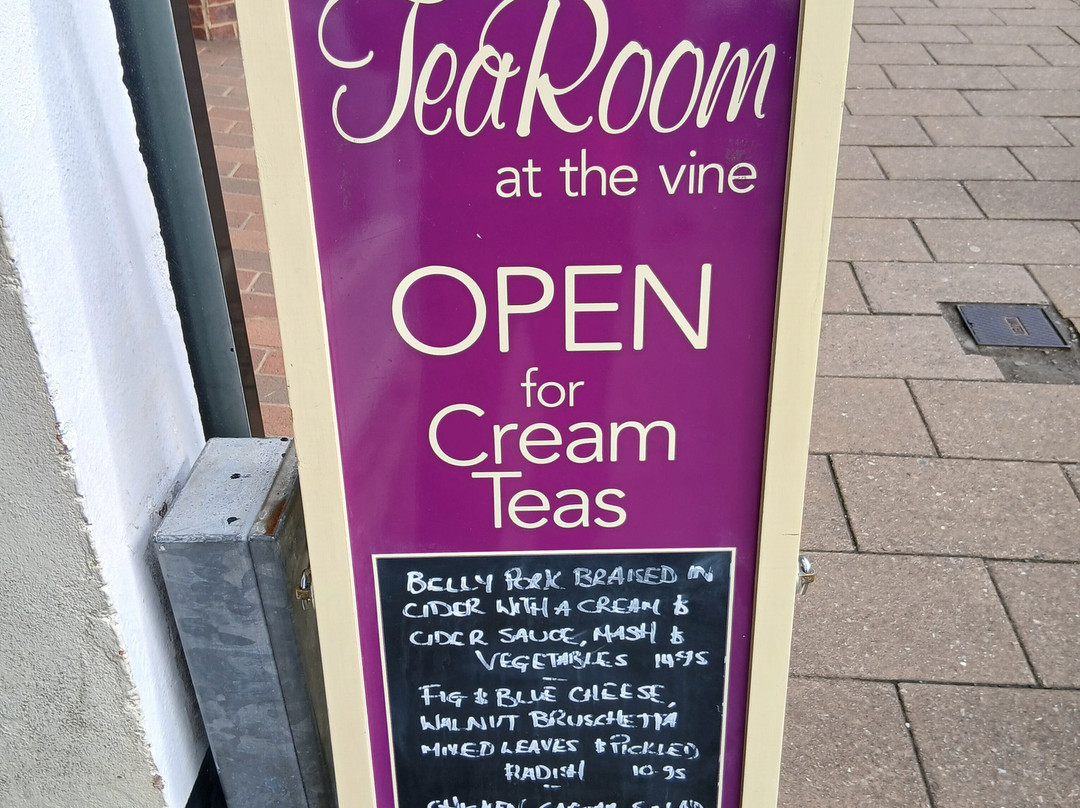 TeaRoom
at the vine
OPEN
for
Cream
Teas
BELLY PORK BRAISED IN
CIDER WITH A CREAM &
CIDER SAUCE, MASH &
VEGETABLES 14.95
FIG & BLUE CHEESE,
WALNUT BRUSCHETTA
MIXED LEAVES & PICKLED
RADISH 10.95
CHICKEN CAESAR SALAD